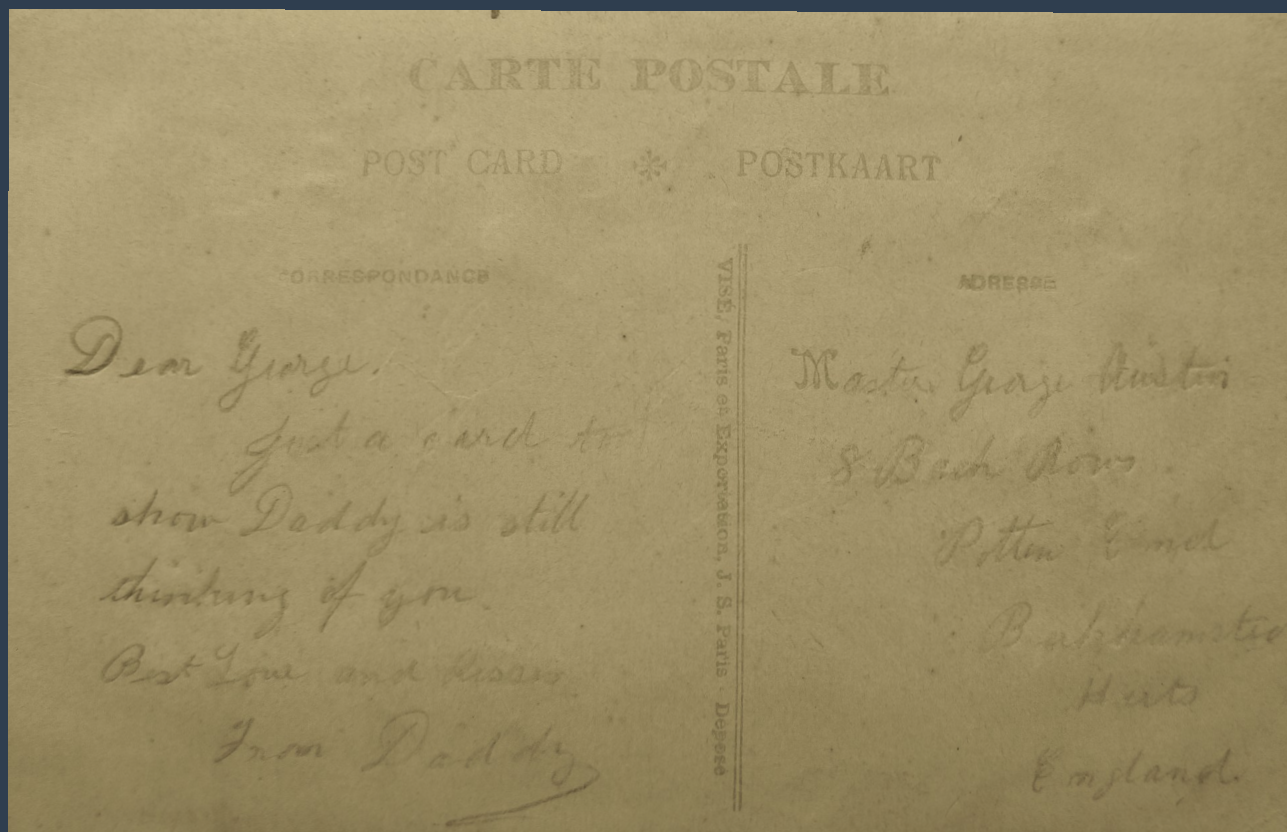 CARTE POSTALE
POST CARD * POSTKAART
CORRESPONDANCE
Dear George.
Just a card to
show Daddy is still
thinking of you.
Best Love and Kisses
From Daddy
VISÉ, Paris et Exportation, J. S. Paris - Déposé
ADRESSE
Master George Austin
8 Back Rows
Potten End
Berkhamsted
Herts
England.